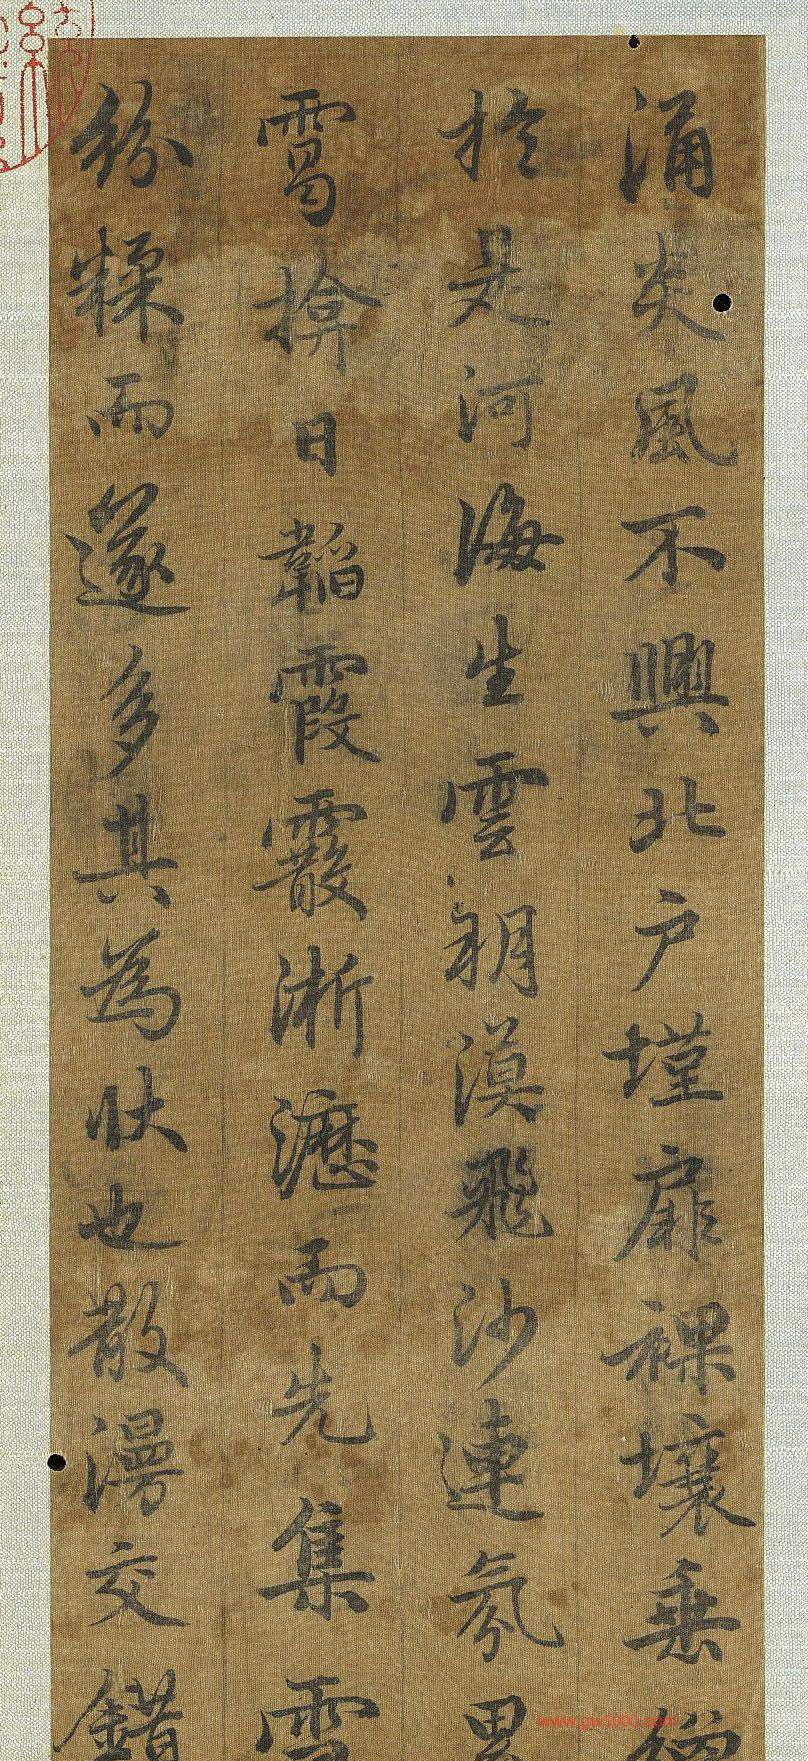 涌炎風不興北户墐扉裸壤垂繒
於是河海生雲朔漠飛沙連氛累
霭揜日韜霞霰淅瀝而先集雪
紛糅而遂多其為狀也散漫交錯
www.gw5000.com